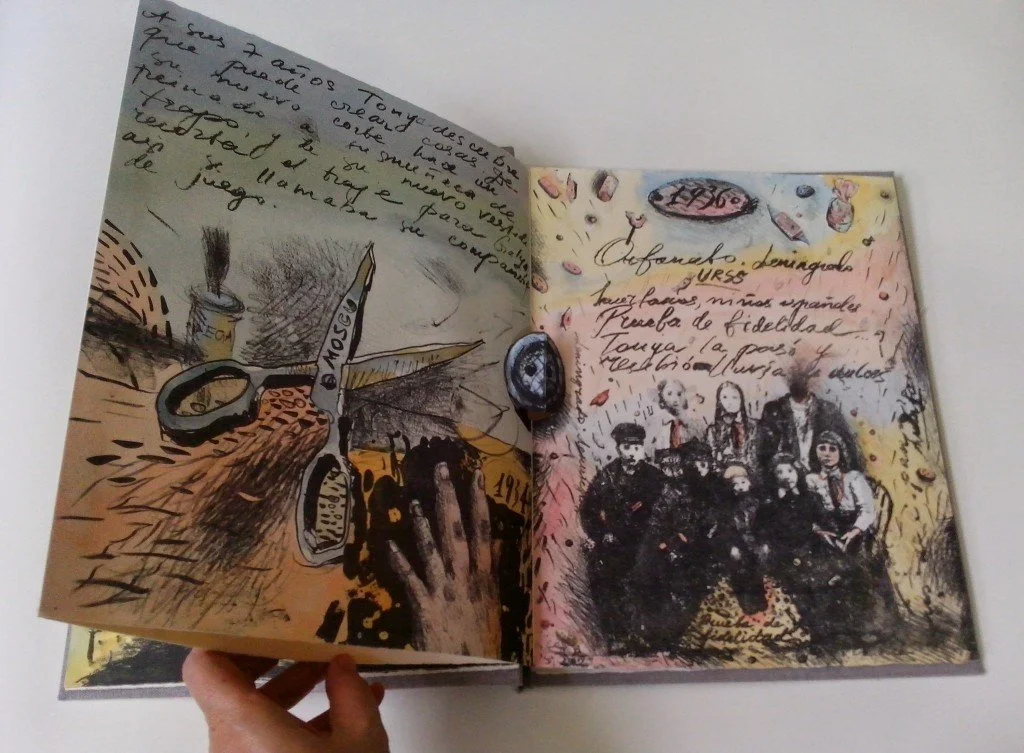 A sus 7 años Tonya descubre
que puede crear cosas de
su nuevo corte hace un
peinado a su muñeca de
trapo, y de su nuevo vestido
recorta el traje para
así se llamaba su compañero
de juego.
MOSCÚ
193
1936
Orfanato. Leningrado
URSS
huérfanos, niños españoles
Prueba de fidelidad
Tonya la pasó y
recibió lluvia de
Prueba de
fidelidad